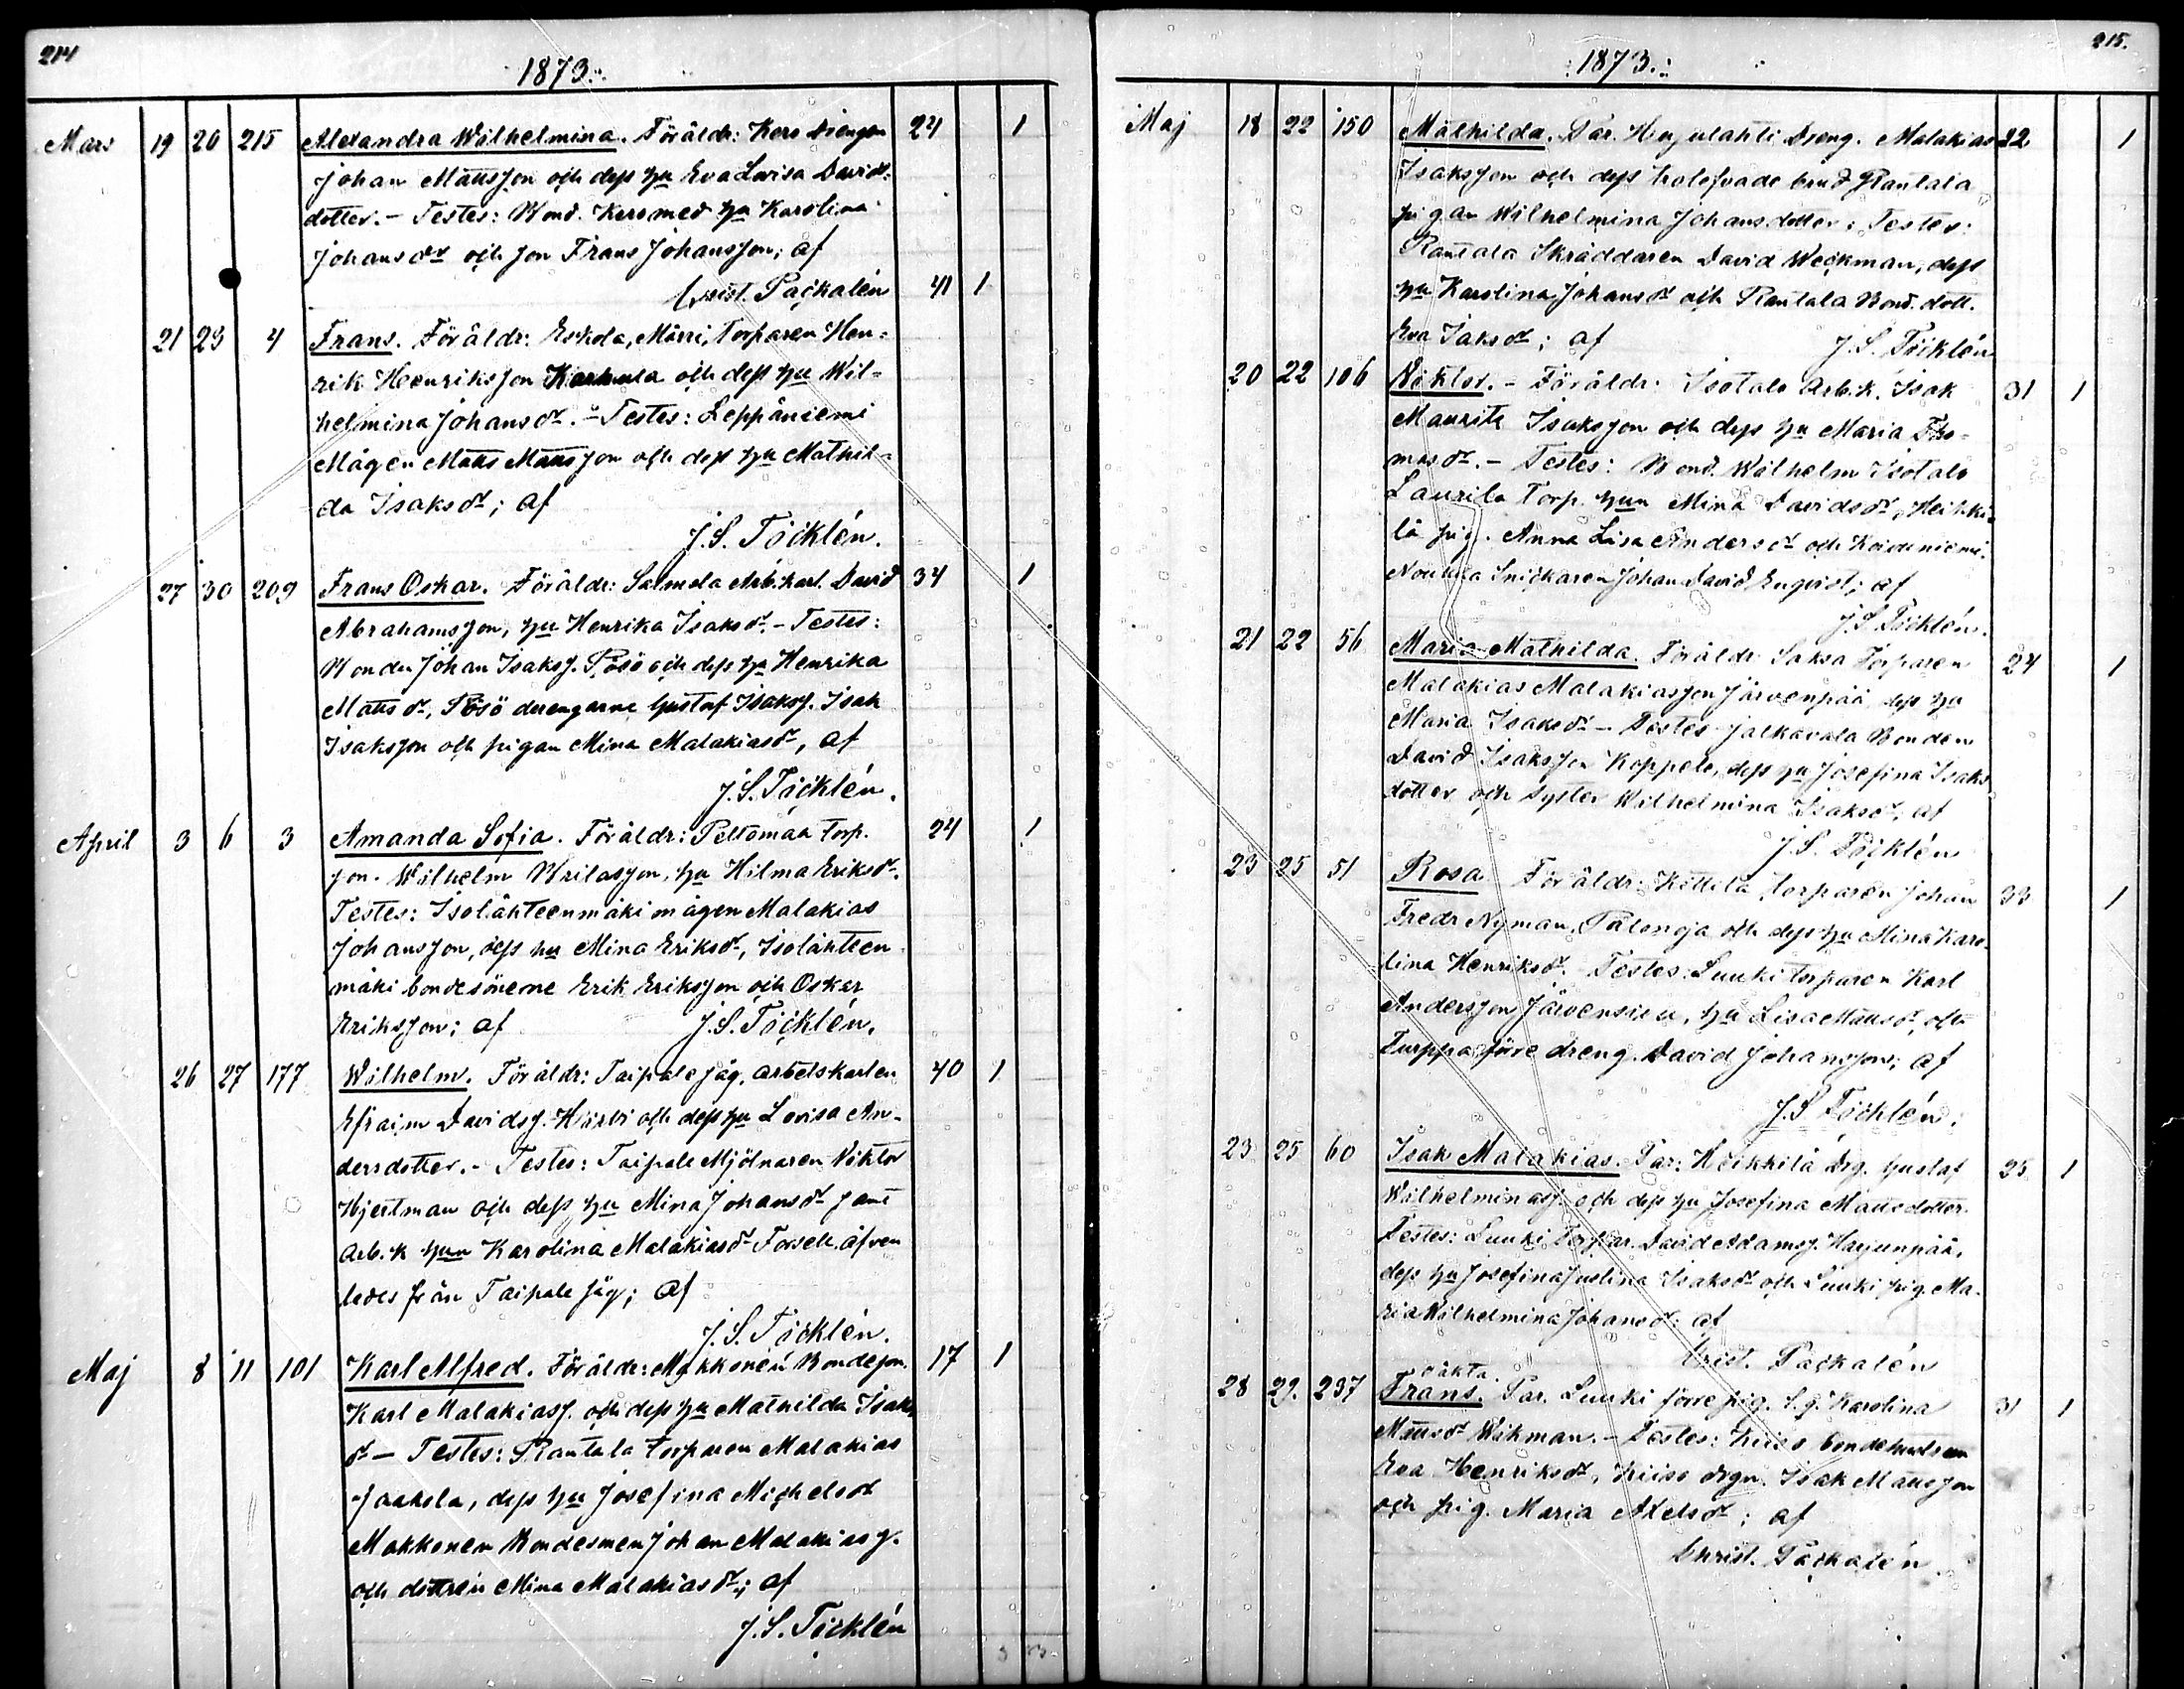 214
1873.
Mars 19 20 215 Alexandra Wilhelmina. Föräldr: Kero Drengen 24 1
Johan Mattsson och dess hu Eva Lovisa Davids
dotter. - Testes: Bond. Kero med hu Karolina
Johansdr och son Frans Johansson; af
Christ. Packalén 41 1
21 23 4 Frans. Föräldr: Eskola, Torparen Hen=
rik Henriksson Karhula och dess hu Wil=
helmina Johansdr. - Testes: Leppäniemi
Mågen Matts Mattsson och dess hu Mathil=
da Isaksdr; af
J.S. Töcklén.
27 30 209 Frans Oskar. Föräldr: Salmela Arb.karl. David 34 1
Abrahamsson, hu Henrika Isaksdr. - Testes:
Bonden Johan Isakss. Pösö och dess hu Henrika
Mattsdr, Pösö drengarne Gustaf Isakss. Isak
Isaksson och pigan Mina Malakiasdr, af
J.S. Töcklén.
April 3 6 3 Amanda Sofia. Föräldr: Peltomaa Torp. 24 1
son. Wilhelm Wrilasson, hu Hilma Eriksdr.
Testes: Isolähteenmäki mågen Malakias
Johansson, dess hu Mina Eriksdr, Isolähteen
mäki bondesönerne Erik Eriksson och Oskar
Eriksson; af J.S. Töcklén.
26 27 177 Wilhelm. Föräldr: Taipale såg, arbetskarlen 40 1
Efraim Davidss. och dess hu Lovisa An=
dersdotter. - Testes: Taipale Mjölnaren Viktor
Hjertman och dess hu Mina Johansdr samt
Arb.k hun Karolina Malakiasdr Forsell äfven
ledes från Taipale såg; af
J.S. Töcklén.
Maj 8 11 101 Karl Alfred. Föräldr: Makkonen Bondeson. 17 1
Karl Malakiass. och dess hu Mathilda Isaks
dr - Testes: Rantala Torparen Malakias
Jaakola, dess hu Josefina Michelsdr
Makkonen Bondesonen Johan Malakiass.
och dottren Mina Malakiasdr; af
J.S. Töcklén
215.
1873.
Maj 18 22 150 Mathilda. Par. Harjulahti Dreng. Malakias 22 1
Isaksson och dess trolofvade brud Rantala
pigan Wilhelmina Johansdotter; Testes:
Rantala Skräddaren David Weckman, dess
hu Karolina Johansdr och Rantala Bond. dott.
Eva Isaksdr; af J.S. Töcklén
20 22 106 Viktor. - Föräldr: Isotalo Arb.k. Isak 31 1
Mauritz Isaksson och dess hu Maria Tho=
masdr. - Testes: Bond. Wilhelm Isotalo
Laurila Torp. hun Mina Davidsdr, Heikki=
lä pig. Anna Lisa Andersdr och Koideniemi
Snickaren Johan David Enqvist; af
J.S. Töcklén.
21 22 56 Maria Mathilda. Föräldr: Saksa Torparen 24 1
Malakias Malakiasson Järvenpää, dess hu
Maria Isaksdr - Testes Jalkavala Bonden
David Isaksson Koppelo, dess hu Josefina Isaks
dotter och Syster Wilhelmina Isaksdr, af
J.S. Töcklén
23 25 51 Rosa. Föräldr: Kittilä, torparen Johan 33 1
Fredr Nyman, Palonoja och dess hu Mina Karo=
lina Henriksdr. Testes: Luuki torparen Karl
Andersson Järvensivu, hu Lisa Mattsdr, och
Turppa förre dreng. David Johansson; af
J.S Töcklén.
23 25 60 Isak Malakias. Par: Heikkilä Drg. Gustaf 25 1
Wilhelminass. och dess hu Josefina Mattsdotter.
Testes: Luuki Torpar. David Adamss. Harjunpää,
dess hu Josefina Justina Isaksdr och Luuki pig. Ma=
ria Wilhelmina Johansdr; af
Christ. Packalén
oäkta.
28 29. 237 Frans. Par. Luuki förre pig. Karolina 31 1
Mattsdr Wikman. - Testes: Kiiso bondehustrun
Eva Henriksdr, Kiiso drgn. Isak Mattsson
och pig. Maria Axelsdr; af
Christ. Packalén